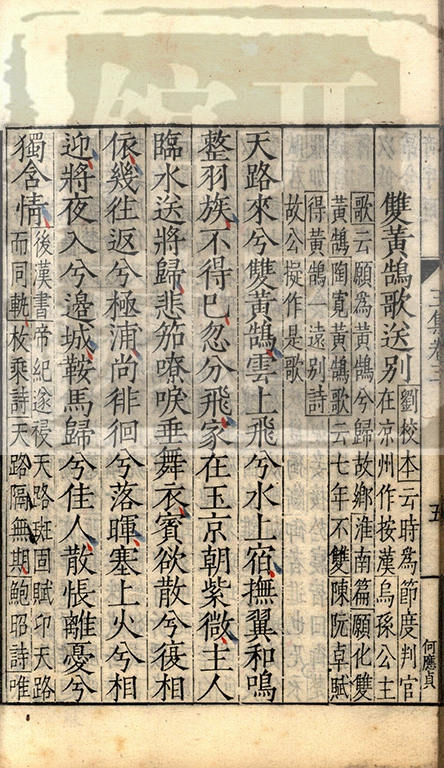 雙黃鵠歌送別劉校本云時為節度判官
在京州作按漢烏孫公主
歌云願為黃鵠兮歸故鄉淮南篇願化雙
黃鵠陶寬黃鵠歌云七年不雙陳阮卓賦
得黃鵠一遠別詩
故公擬作是歌
天路來兮雙黃鵠雲上飛兮水上宿撫翼和鳴
整羽族不得已忽分飛家在玉京朝紫微主人
臨水送將歸悲笳嘹唳垂舞衣賓欲散兮復相
依幾往返兮極浦尚徘徊兮落暉塞上火兮相
迎將夜入兮邊城鞍馬歸兮佳人散悵離憂兮
獨含情後漢書帝紀遂祲天路班固賦卬天路
而同軌枚乘詩天路隔無期鮑昭詩唯
五
何應貞